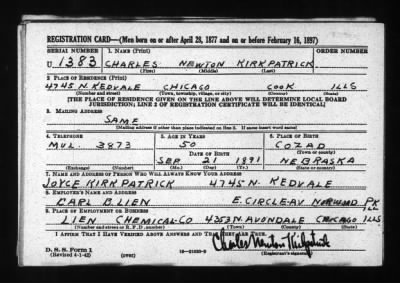 REGISTRATION CARD—(Men born on or after April 28, 1877 and on or before February 16, 1897)
SERIAL NUMBER 1. NAME (Print) ORDER NUMBER
U 1383 CHARLES NEWTON KIRKPATRICK
(First) (Middle) (Last)
2. PLACE OF RESIDENCE (Print)
4745 N. KEDVALE CHICAGO COOK ILLS
(Number and street) (Town, township, village, or city) (County) (State)
[THE PLACE OF RESIDENCE GIVEN ON THE LINE ABOVE WILL DETERMINE LOCAL BOARD
JURISDICTION; LINE 2 OF REGISTRATION CERTIFICATE WILL BE IDENTICAL]
3. MAILING ADDRESS
SAME
[Mailing address if other than place indicated on line 2. If same insert word same]
4. TELEPHONE 5. AGE IN YEARS 6. PLACE OF BIRTH
MUL. 3873 50 COZAD
DATE OF BIRTH (Town or county)
SEP 21 1891 NEBRASKA
(Exchange) (Number) (Mo.) (Day) (Yr.) (State or country)
7. NAME AND ADDRESS OF PERSON WHO WILL ALWAYS KNOW YOUR ADDRESS
JOYCE KIRKPATRICK 4745 N. KEDVALE
8. EMPLOYER'S NAME AND ADDRESS
CARL B. LIEN E. CIRCLE AV NORWOOD PK ILL
9. PLACE OF EMPLOYMENT OR BUSINESS
LIEN CHEMICAL CO 4353 N. AVONDALE CHICAGO ILLS
(Number and street or R. F. D. number) (Town) (County) (State)
I AFFIRM THAT I HAVE VERIFIED ABOVE ANSWERS AND THAT THEY ARE TRUE.
Charles Newton Kirkpatrick
D. S. S. Form 1
(Revised 4-1-42) (over) 16—21630-2 (Registrant's signature)